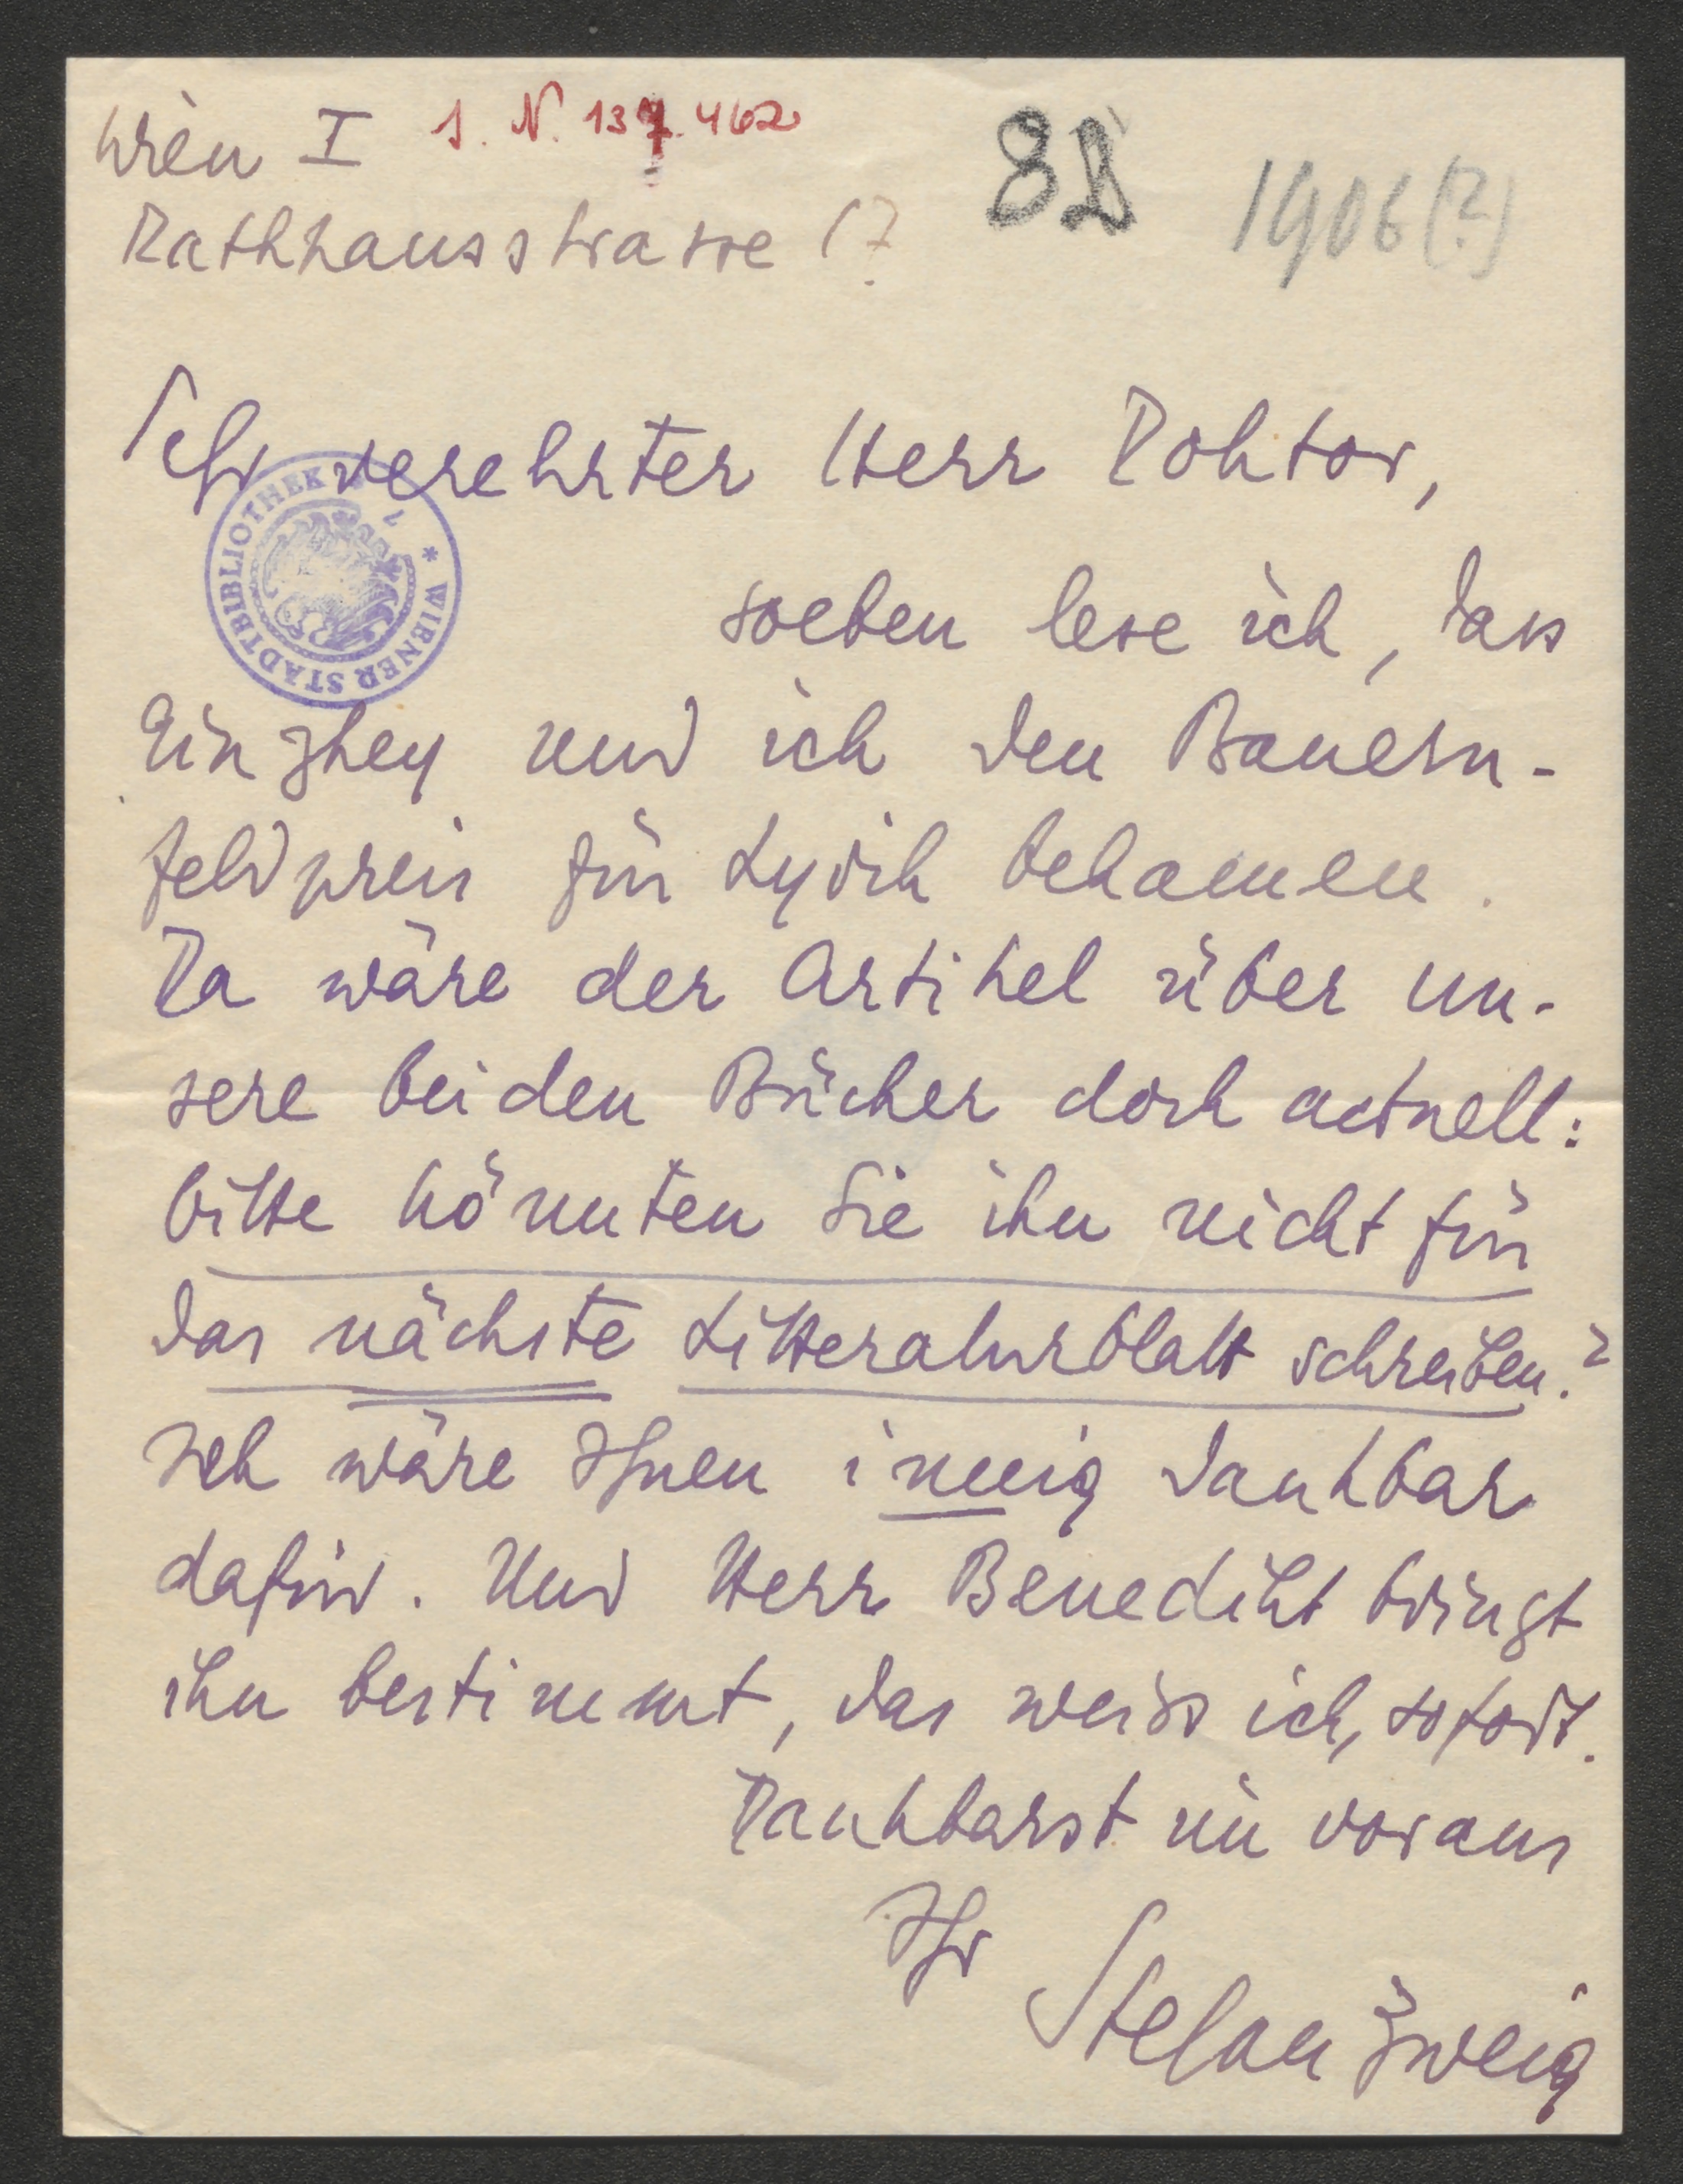 Wien I
I. N. 137.462
8D
1906(?)
Rathhausstrasse 17
Sehr verehrter Herr Doktor,
WIENER STADTBIBLIOTHEK
soeben lese ich, dass
Ginzkey und ich den Bauern-
feldpreis für Lyrik bekamen.
Da wäre der Artikel über un-
sere beiden Bücher doch actuell:
bitte könnten Sie ihn nicht für
das nächste Litteraturblatt schreiben?
Ich wäre Ihnen innig dankbar
dafür. Und Herr Benedikt bringt
ihn bestimmt, das weiss ich, sofort.
Dankbarst im voraus
Ihr
Stefan Zweig